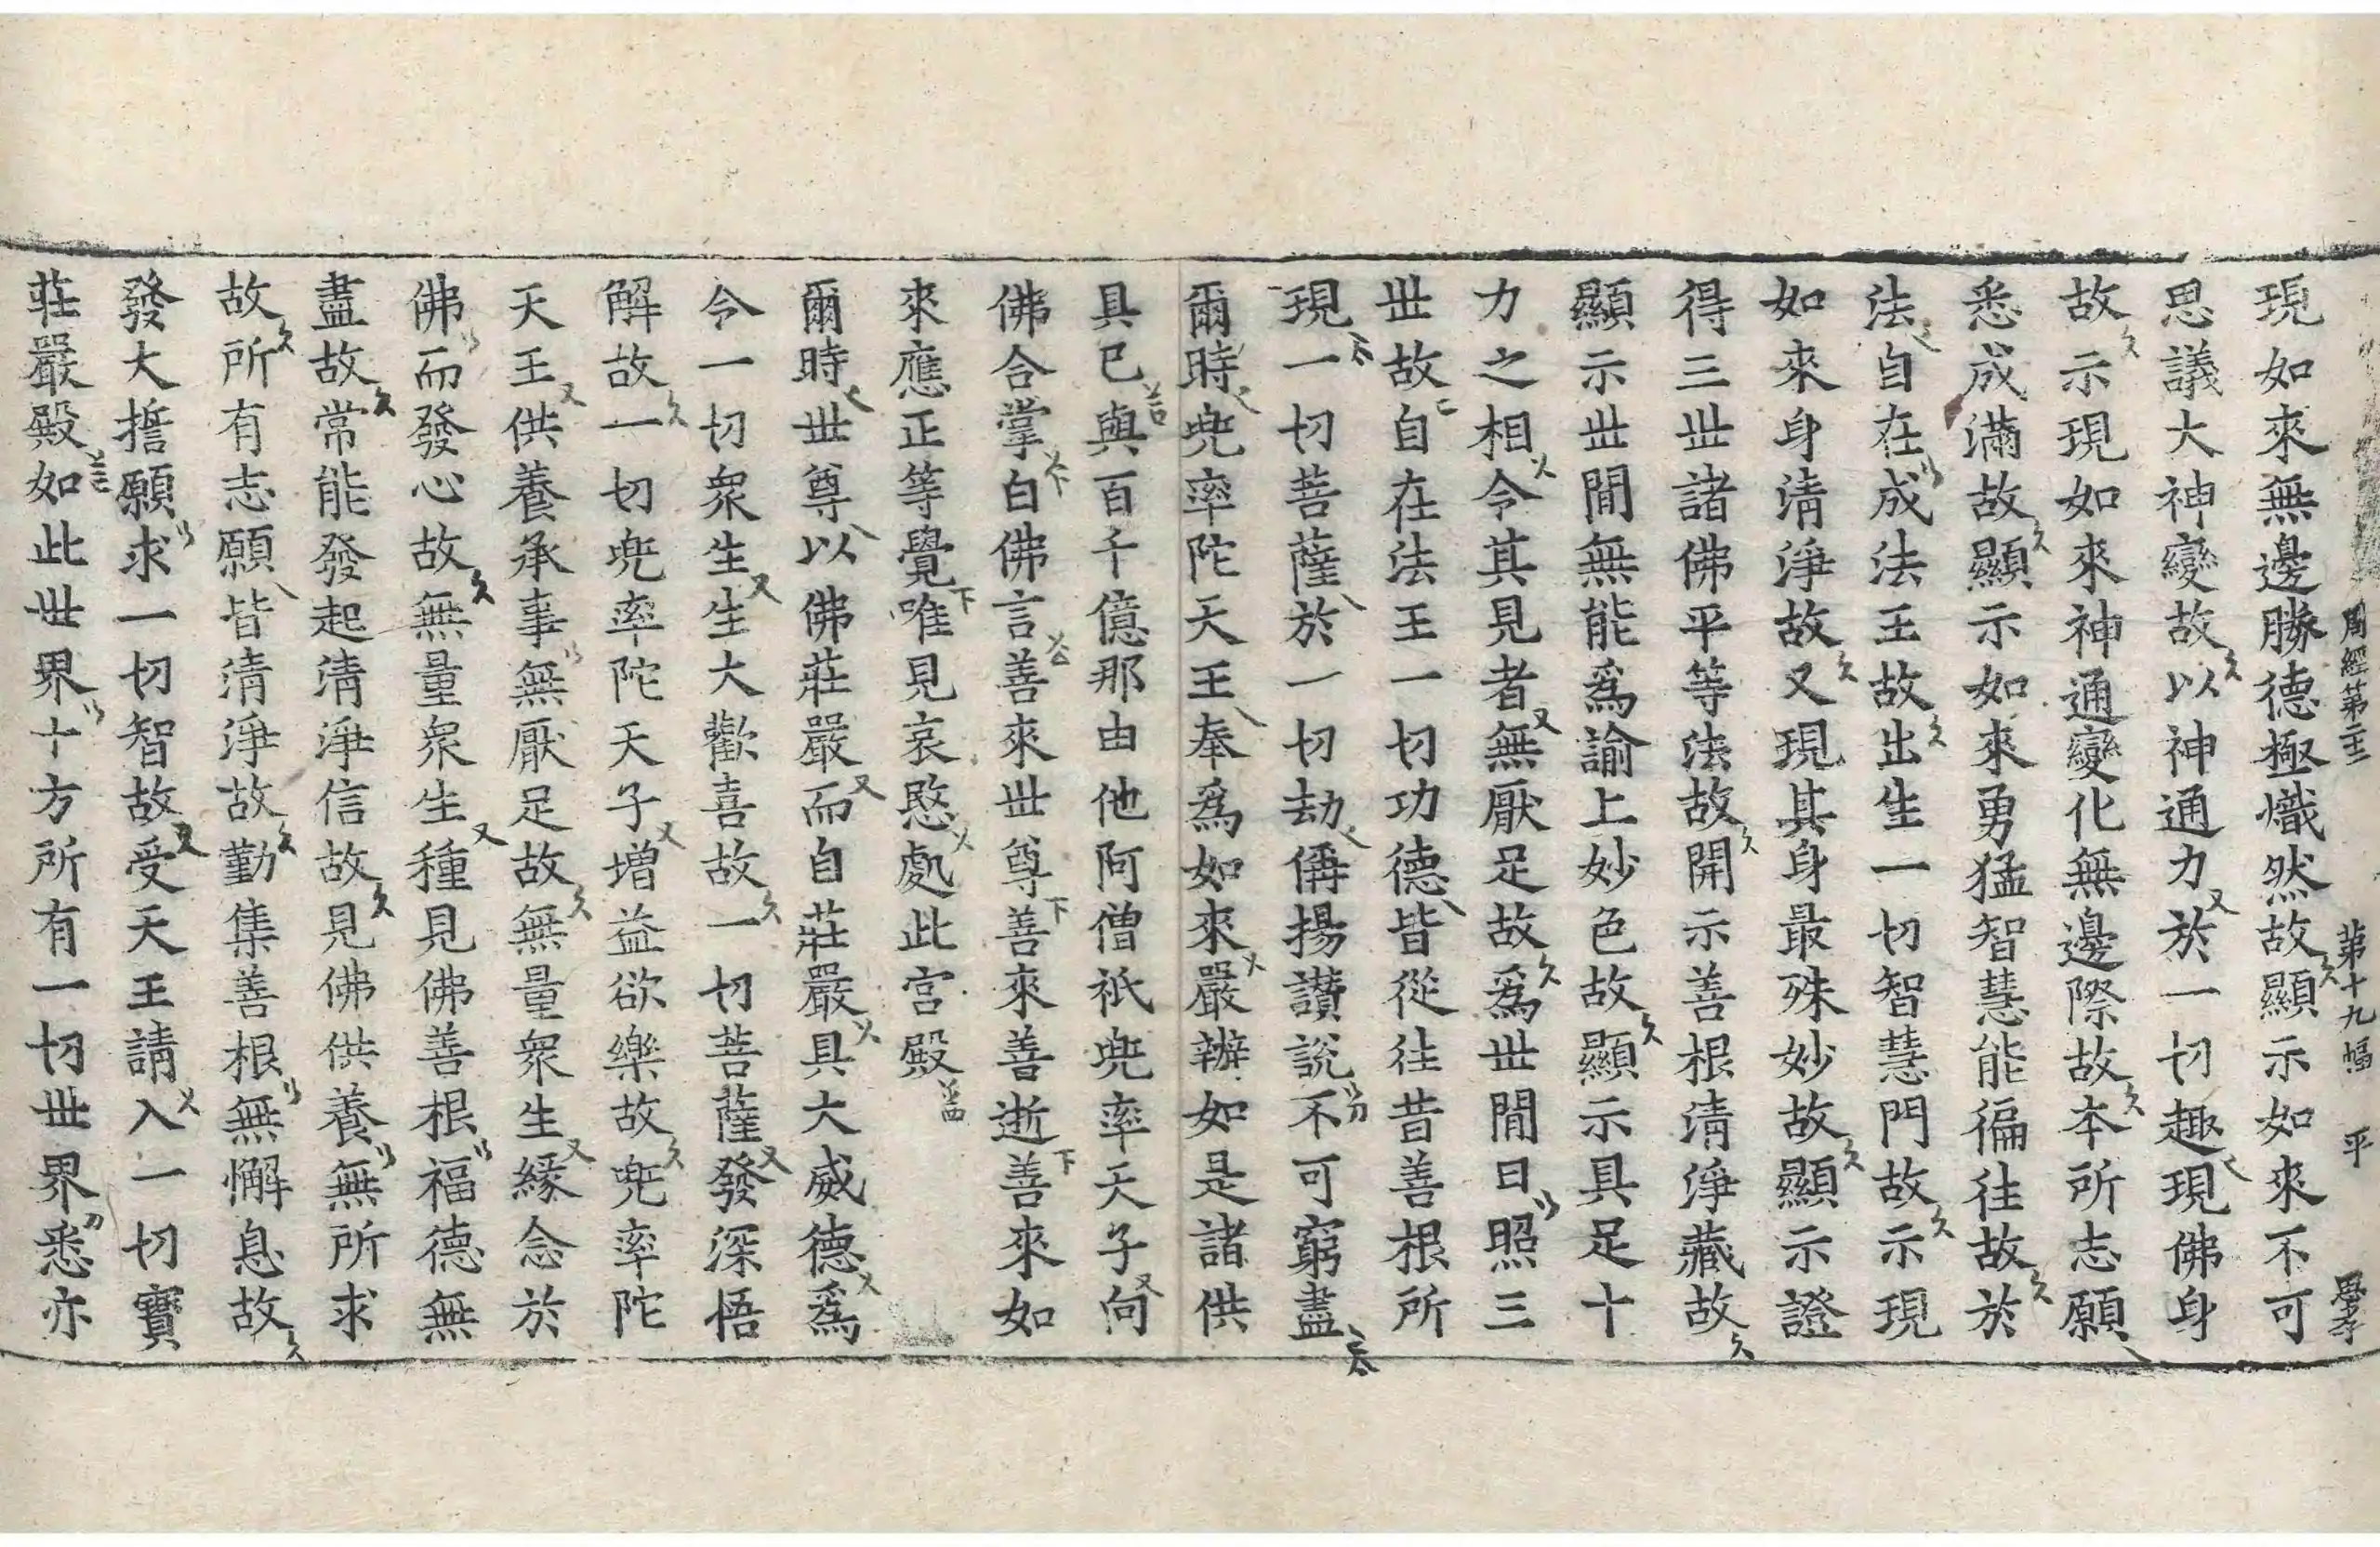 周經第二十二 第十九幅 平
現如來無邊勝德極熾然故顯示如來不可
思議大神變故以神通力於一切趣現佛身
故示現如來神通變化無邊際故本所志願
悉成滿故顯示如來勇猛智慧能徧往故於
法自在成法王故出生一切智慧門故示現
如來身清淨故又現其身最殊妙故顯示證
得三世諸佛平等法故開示善根清淨藏故
顯示世間無能爲諭上妙色故顯示具足十
力之相令其見者無厭足故爲世間日照三
世故自在法王一切功德皆從往昔善根所
現一切菩薩於一切劫偁揚讚說不可窮盡
爾時兜率陀天王奉爲如來嚴辦如是諸供
具已與百千億那由他阿僧祇兜率天子向
佛合掌白佛言善來世尊善來善逝善來如
來應正等覺唯見哀愍處此宮殿
爾時世尊以佛莊嚴而自莊嚴具大威德爲
令一切眾生生大歡喜故一切菩薩發深悟
解故一切兜率陀天子增益欲樂故兜率陀
天王供養承事無厭足故無量眾生緣念於
佛而發心故無量眾生種見佛善根福德無
盡故常能發起清淨信故見佛供養無所求
故所有志願皆清淨故勤集善根無懈息故
發大誓願求一切智故受天王請入一切寶
莊嚴殿如此世界十方所有一切世界悉亦